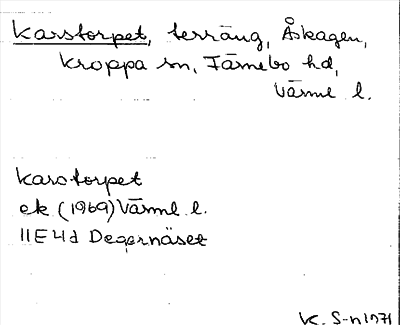 Karstorpet, terräng, Åskagen,
Kroppa sn, Färnebo hd,
Värml l.
Karstorpet
ek (1969) Värml l.
11E4d Degernäset
K. S-n 1971